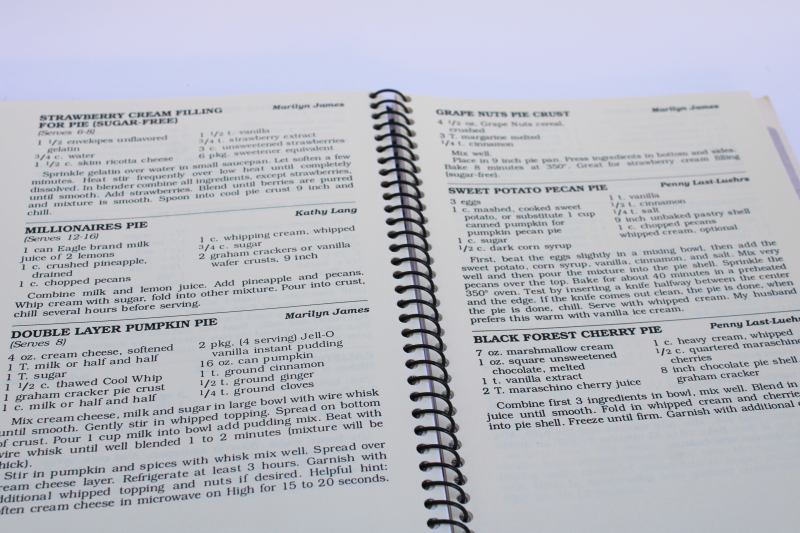 STRAWBERRY CREAM FILLING
FOR PIE (SUGAR-FREE)
Marilyn James
(Serves 6-8)
1 1/2 envelopes unflavored
gelatin
3/4 c. water
1 1/2 c. skim ricotta cheese
1 1/2 t. vanilla
3/4 t. strawberry extract
3 c. unsweetened strawberries
6 pkg. sweetener equivalent
Sprinkle gelatin over water in small saucepan. Let soften a few
minutes. Heat stir frequently over low heat until completely
dissolved. In blender combine all ingredients, except strawberries,
until smooth. Add strawberries. Blend until berries are purred
and mixture is smooth. Spoon into cool pie crust 9 inch and
chill.
MILLIONAIRES PIE
Kathy Lang
(Serves 12-16)
1 can Eagle brand milk
juice of 2 lemons
1 c. crushed pineapple,
drained
1 c. chopped pecans
1 c. whipping cream, whipped
3/4 c. sugar
2 graham crackers or vanilla
wafer crusts, 9 inch
Combine milk and lemon juice. Add pineapple and pecans.
Whip cream with sugar, fold into other mixture. Pour into crust,
chill several hours before serving.
DOUBLE LAYER PUMPKIN PIE
Marilyn James
(Serves 8)
4 oz. cream cheese, softened
1 T. milk or half and half
1 T. sugar
1 1/2 c. thawed Cool Whip
1 graham cracker pie crust
1 c. milk or half and half
2 pkg. (4 serving) Jell-O
vanilla instant pudding
16 oz. can pumpkin
1 t. ground cinnamon
1/2 t. ground ginger
1/4 t. ground cloves
Mix cream cheese, milk and sugar in large bowl with wire whisk
until smooth. Gently stir in whipped topping. Spread on bottom
of crust. Pour 1 cup milk into bowl add pudding mix. Beat with
wire whisk until well blended 1 to 2 minutes (mixture will be
thick).
Stir in pumpkin and spices with whisk mix well. Spread over
cream cheese layer. Refrigerate at least 3 hours. Garnish with
additional whipped topping and nuts if desired. Helpful hint:
often cream cheese in microwave on High for 15 to 20 seconds.
GRAPE NUTS PIE CRUST
Marilyn James
4 1/2 oz. Grape Nuts cereal,
crushed
3 T. margarine melted
1/4 t. cinnamon
Mix well.
Place in 9 inch pie pan. Press ingredients in bottom and sides.
Bake 8 minutes at 350°. Great for strawberry cream filling
(sugar-free).
SWEET POTATO PECAN PIE
Penny Last-Luehrs
3 eggs
1 c. mashed, cooked sweet
potato, or substitute 1 cup
canned pumpkin for
pumpkin pecan pie
1 c. sugar
1/2 c. dark corn syrup
1 t. vanilla
1/2 t. cinnamon
1/4 t. salt
9 inch unbaked pastry shell
1 c. chopped pecans
whipped cream, optional
First, beat the eggs slightly in a mixing bowl, then add the
sweet potato, corn syrup, vanilla, cinnamon, and salt. Mix very
well and then pour the mixture into the pie shell. Sprinkle the
pecans over the top. Bake for about 40 minutes in a preheated
350° oven. Test by inserting a knife halfway between the center
and the edge. If the knife comes out clean, the pie is done, when
the pie is done, chill. Serve with whipped cream. My husband
prefers this warm with vanilla ice cream.
BLACK FOREST CHERRY PIE
Penny Last-Luehrs
7 oz. marshmallow cream
1 oz. square unsweetened
chocolate, melted
1 t. vanilla extract
2 T. maraschino cherry juice
1 c. heavy cream, whipped
1/2 c. quartered maraschino
cherries
8 inch chocolate pie shell
graham cracker
Combine first 3 ingredients in bowl, mix well. Blend in
juice until smooth. Fold in whipped cream and cherries
into pie shell. Freeze until firm. Garnish with additional